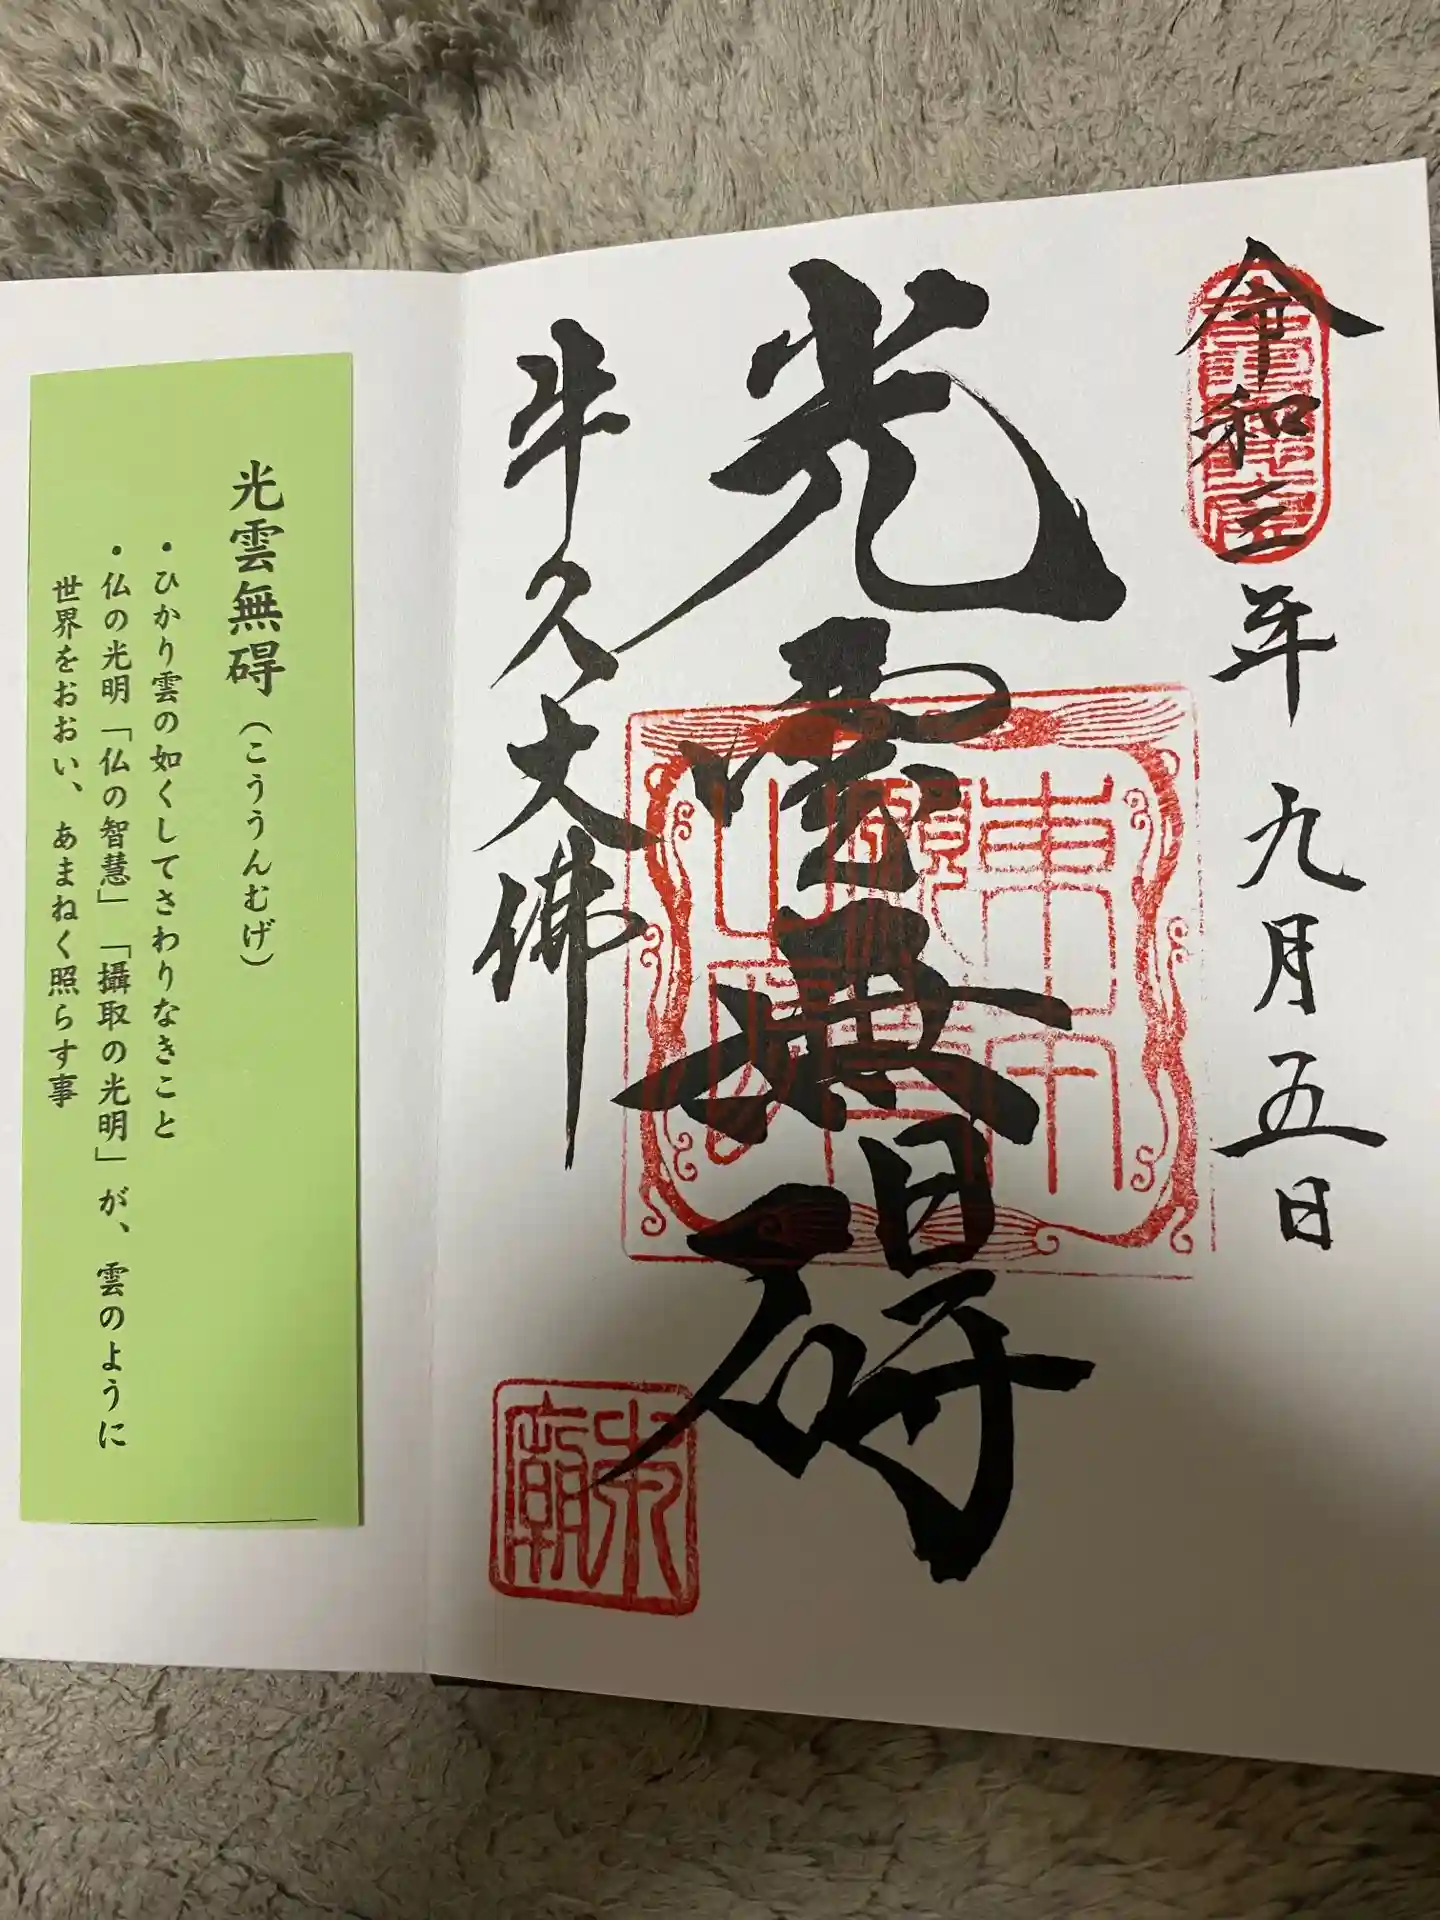 令和三年九月五日
光雲無碍
牛久大佛
光雲無碍(こううんむげ)
・ひかり雲の如くしてさわりなきこと
・仏の光明「仏の智慧」「攝取の光明」が、雲のように
世界をおおい、あまねく照らす事